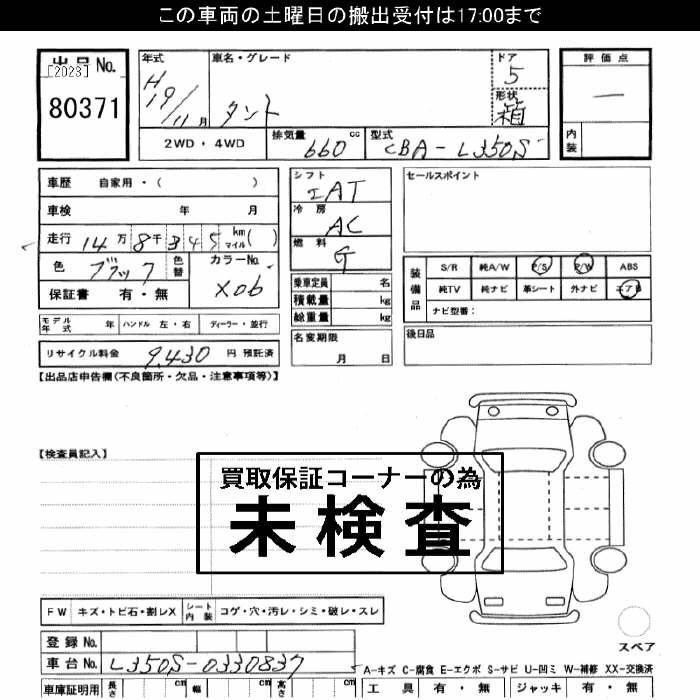 この車両の土曜日の搬出受付は17:00まで
出品No.
[2023]
80371
年式
H19/11月
車名・グレード
タント
ドア
5
形状
箱
評価点
—
内装
2WD・4WD
排気量
660cc
型式
CBA-L350S
車歴 自家用・( )
車検 年 月
走行 14万8千345 km マイル( )
色 ブラック 色替
カラーNo.
X06
保証書 有・無
シフト
IAT
冷房
AC
燃料
G
乗車定員 名
積載量 kg
総重量 kg
セールスポイント
装備品
S/R 純A/W P/S P/W ABS
純TV 純ナビ 革シート 外ナビ エアB
ナビ型番:
モデル年式 年 ハンドル 左・右 ディーラー・並行
リサイクル料金 9,430 円 預託済
名変期限
月 日
後日品
【出品店申告欄(不良箇所・欠品・注意事項等)】
【検査員記入】
買取保証コーナーの為
未検査
FW キズ・トビ石・割レX シート内装 コゲ・穴・汚レ・シミ・破レ・スレ
スペア
登録No.
車台No. L350S-0330837
A-キズ C-腐食 E-エクボ S-サビ U-凹ミ W-補修 XX-交換済
車庫証明用 長さ cm 幅 cm 高さ cm
工具 有・無 ジャッキ 有・無